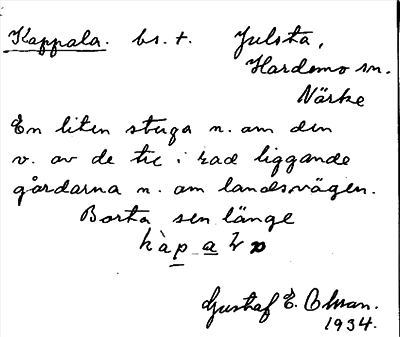 Kappala. bs. t. Julsta,
Hardemo sn.
Närke
En liten stuga n. om den
v. av de tre i rad liggande
gårdarna n. om landsvägen.
Borta sen länge
Gustaf E. Olsson.
1934.